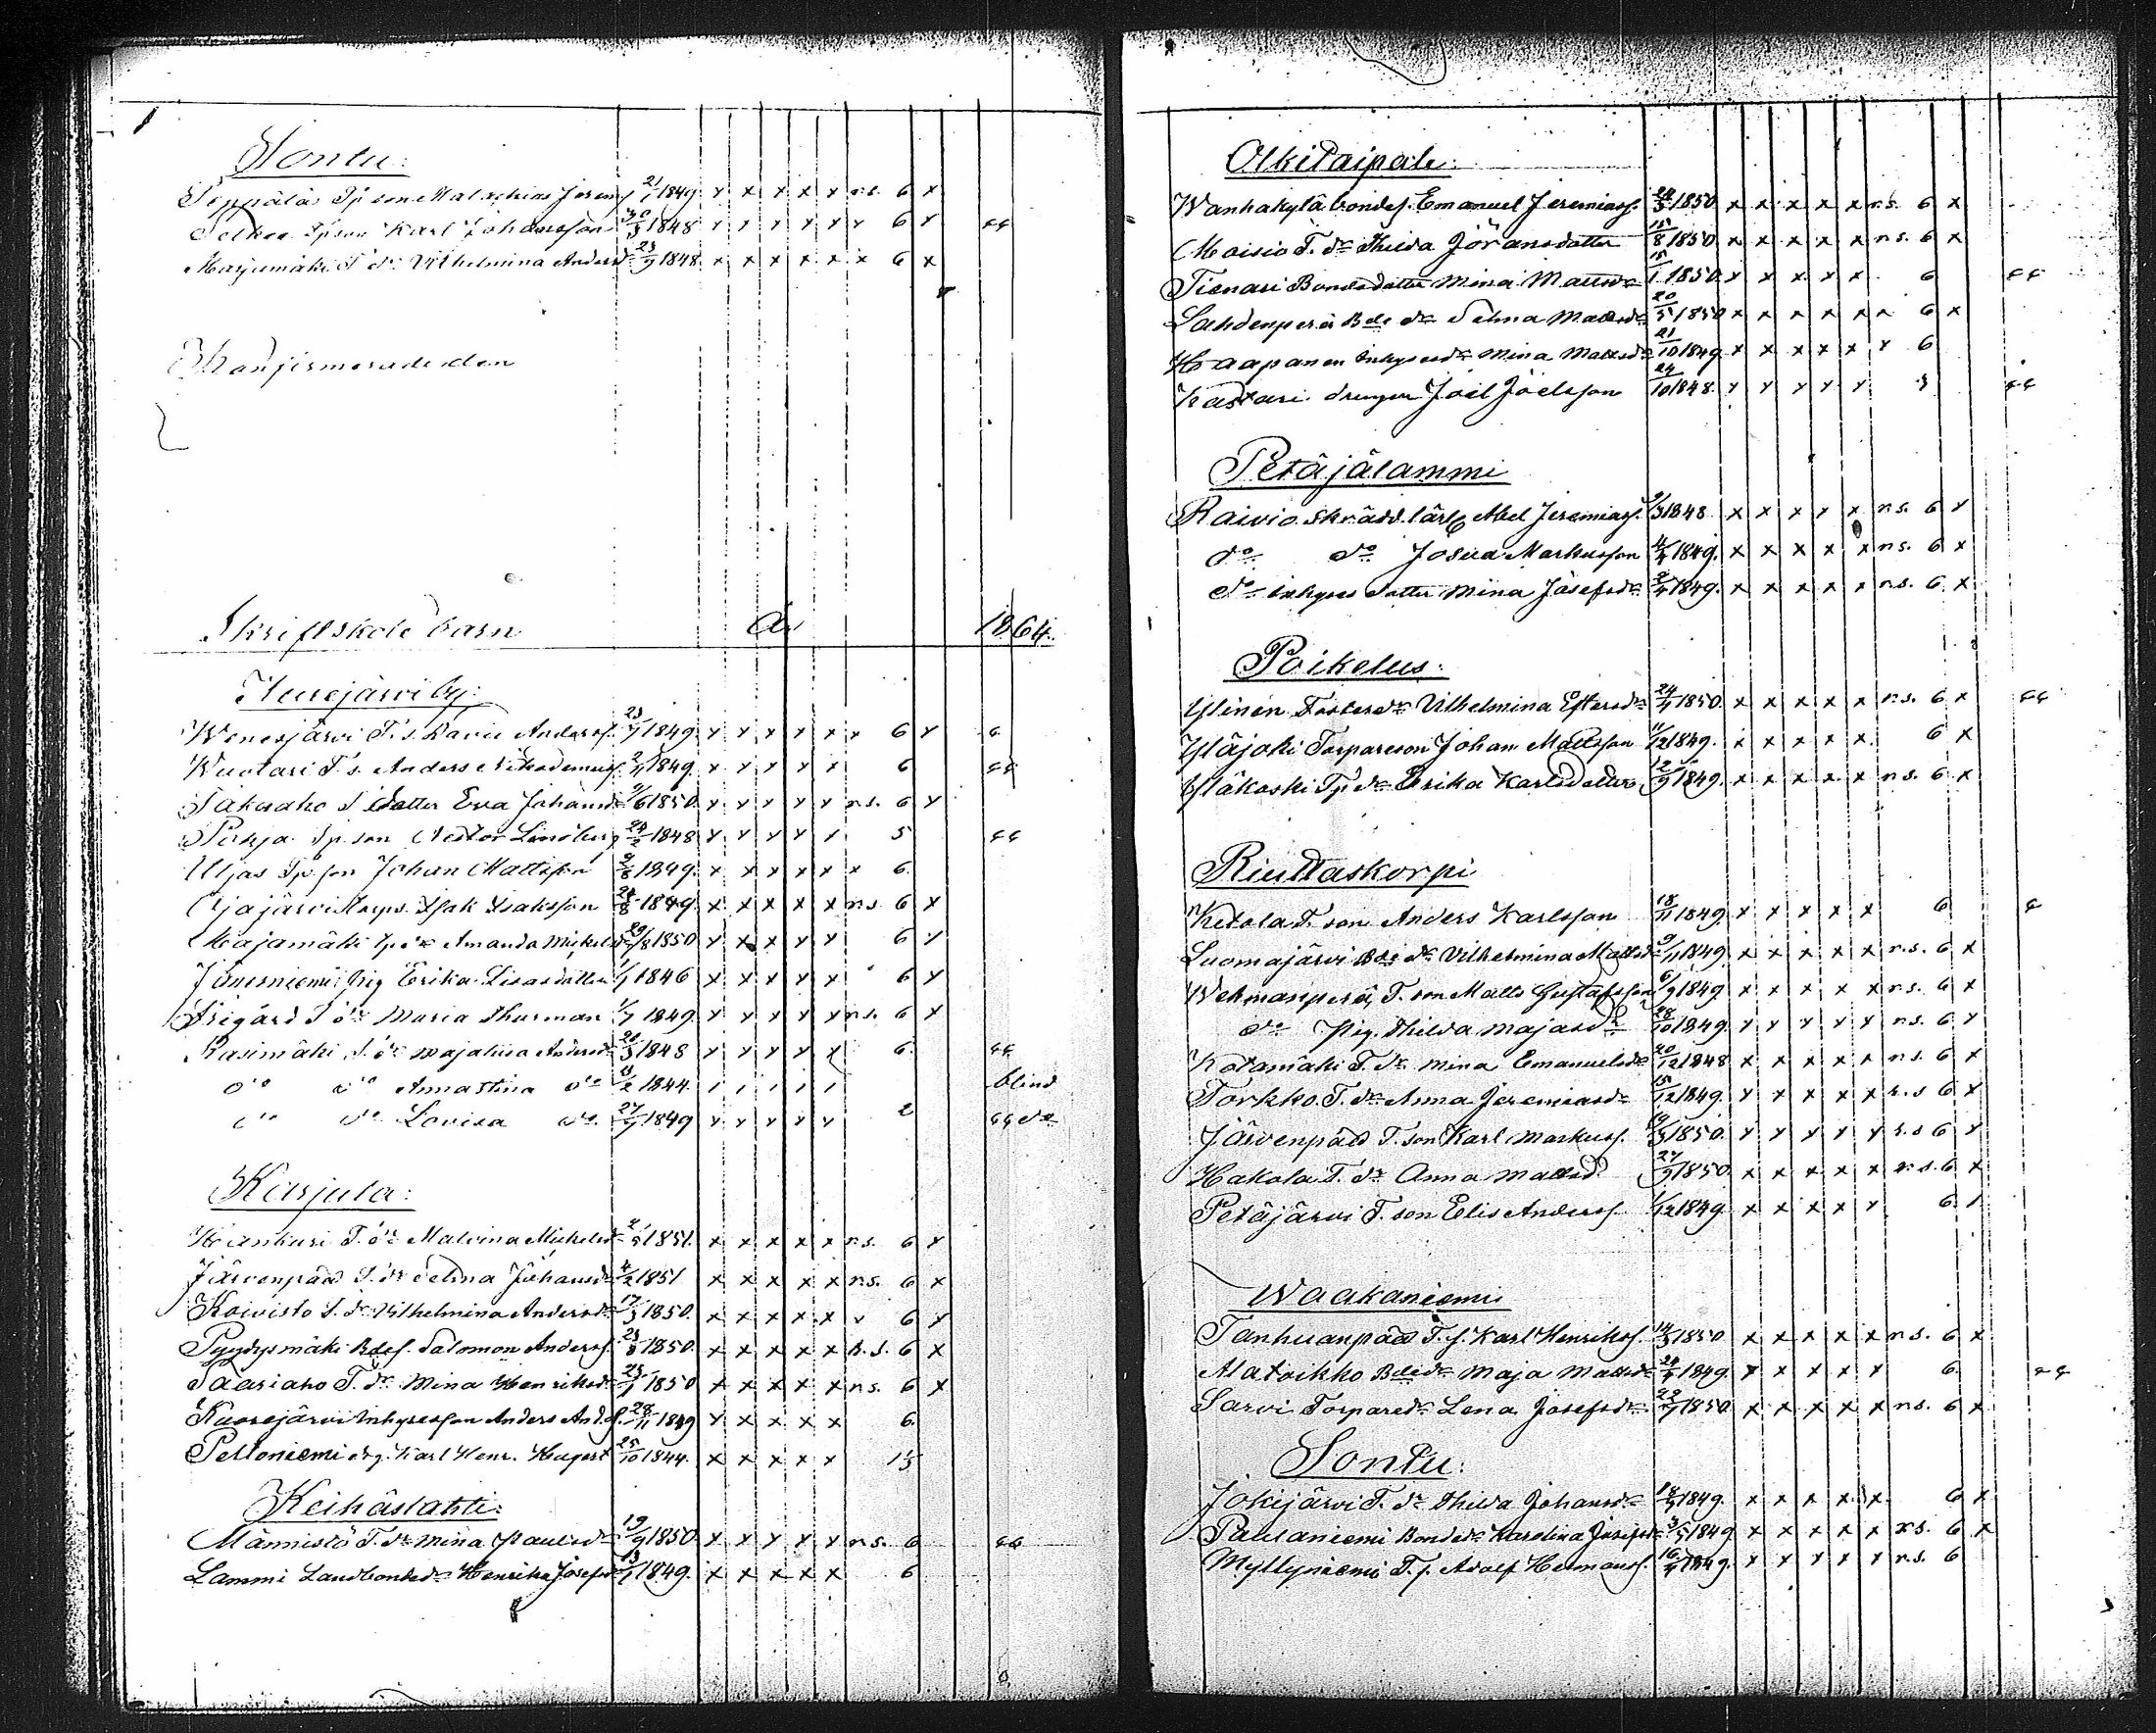 Sontu:
Seppälä Tp son Malachias Jerem 21/1 1849. x x x x x n.s. 6 x
Selkee Tp son Karl Johansson 30/3 1848 x x x x x x 6 x ??
Marjumäki T dr Vilhelmina Andersdr 23/9 1848. x x x x x x 6 x
Konfirmerade den
Skriftskole barn År 1864.
Kurejärvi by:
Wenesjärvi T. s. Anderss. 23/7 1849 x x x x x x 6 x
Wuotari T. s. Anders Nikodemuss. 1849. x x x x x 6
datter Eva Johansdr 9/6 1850. x x x x x n.s. 6 x
Tp. son Nestor Lindberg 24/2 1848 x x x x x 5
Uljas Tp. son Johan Mattsson 2/8 1849. x x x x x x 6.
Ojajärvi Torps. Isak Isaksson 24/8 1849. x x x x x n.s. 6 x
Majamäki Tp dr Amanda Mickelsdr 29/8 1850 x x x x x 6 x
Jänesniemi pig Erika Lisasdatter 1/7 1846 x x x x x 6 x
T dr Maria Thurman 1/7 1849. x x x x x n.s. 6 x
Rasimäki T. dr Majalisa Andersdr 21/3 1848 x x x x x 6.
do do Annastina do 1844. blind
do do Lovisa do 27/7 1849 x x x x x 2 do
Karjula:
Hankuri T. dr Malvina Mickelsdr 2/5 1851. x x x x x n.s. 6 x
Järvenpää T. dr Selma Johansdr 4/2 1851 x x x x x n.s. 6 x
Koivisto T. dr Vilhelmina Andersdr 17/3 1850. x x x x x x 6 x
Pyydysmäki Bdes. Salomon Anderss. 23/8 1850. x x x x x n.s. 6 x
Saariaho T. dr Mina Henriksdr 23/1 1850 x x x x x n.s. 6 x
Kuorejärvi Inhyresson Anders Ands. 28/11 1849 x x x x x 6.
Peltoniemi drg. Karl Henr. Hagert 25/10 1844. x x x x x 15
Keihäslahti:
Männistö T. dr Mina Paulsdr 19/9 1850. x x x x x n.s. 6
Lammi Landbondedr Henrika Josefsdr 13/1 1849. x x x x x 6
Olkitaipale:
Wanhakylä bondes. Emanuel Jeremiass. 29/3 1850 x x x x x n.s. 6 x
Moisio T. dr Thilda Jöransdatter 15/8 1850 x x x x x n.s. 6 x
Tienari Bondedatter Mina Mattsdr 15/1 1850. x x x x x 6
Lahdenperä Bde dr Selma Mattsdr 20/5 1850 x x x x x x 6 x
Haapanen Inhysesdr Mina Mattsdr 21/10 1849. x x x x x x 6
Kastari drengen Joel Joelsson 24/10 1848. x x x x x
Petäjälammi
Raivio Skrädd.lärl. Abel Jeremiass. 9/3 1848 x x x x x n.s. 6 x
do do Josua Markusson 4/4 1849. x x x x x n.s. 6 x
do inhyses datter Mina Josefsdr 2/4 1849. x x x x x n.s. 6 x
Poikelus:
Ylinen Fosterdr Vilhelmina Estersdr 24/4 1850. x x x x x n.s. 6 x
Yläjoki Torpareson Johan Mattsson 11/12 1849. x x x x x 6 x
Yläkoski Tp dr Erika Karlsdatter 12/9 1849. x x x x x n.s. 6 x
Riuttaskorpi
Ketola T. son Anders Karlsson 18/11 1849. x x x x x 6
Luomajärvi Bde dr Vilhelmina Mattsdr 9/11 1849. x x x x x n.s. 6 x
Wehmanperä, T. son Matts Gustafsson 6/9 1849 x x x x x n.s. 6 x
do Pig. Thilda Majasdr 28/10 1849. x x x x x n.s. 6 x
Kotamäki T. dr Mina Emanuelsdr 20/12 1848 x x x x x n.s. 6 x
Torkko T. dr Anna Jeremiasdr 15/12 1849. x x x x x n.s 6 x
Järvenpää T. son Karl Markuss. 19/3 1850. x x x x x n.s 6 x
Hakola T. dr Anna Mattsd 27/9 1850 x x x x x n.s. 6 x
Petäjärvi T. son Elis Anderss. 1/12 1849 x x x x x 6
Waakaniemi
Tanhuanpää T. s. Karl Henrikss. 14/3 1850 x x x x x n.s. 6 x
Alatoikko Bde dr Maja Mattsdr 24/4 1849. x x x x x 6
Sarvi Torparedr Lena Josefsdr 22/7 1850 x x x x x n.s. 6 x
Sontu:
Jokijärvi T. dr Thilda Johansdr 18/4 1849. x x x x x 6 x
Pausaniemi Bondedr Karolina Josefsdr 3/5 1849 x x x x x n.s. 6 x
Myllyniemi T. s. Adolf Hermanss. 16/4 1849. x x x x x n.s. 6